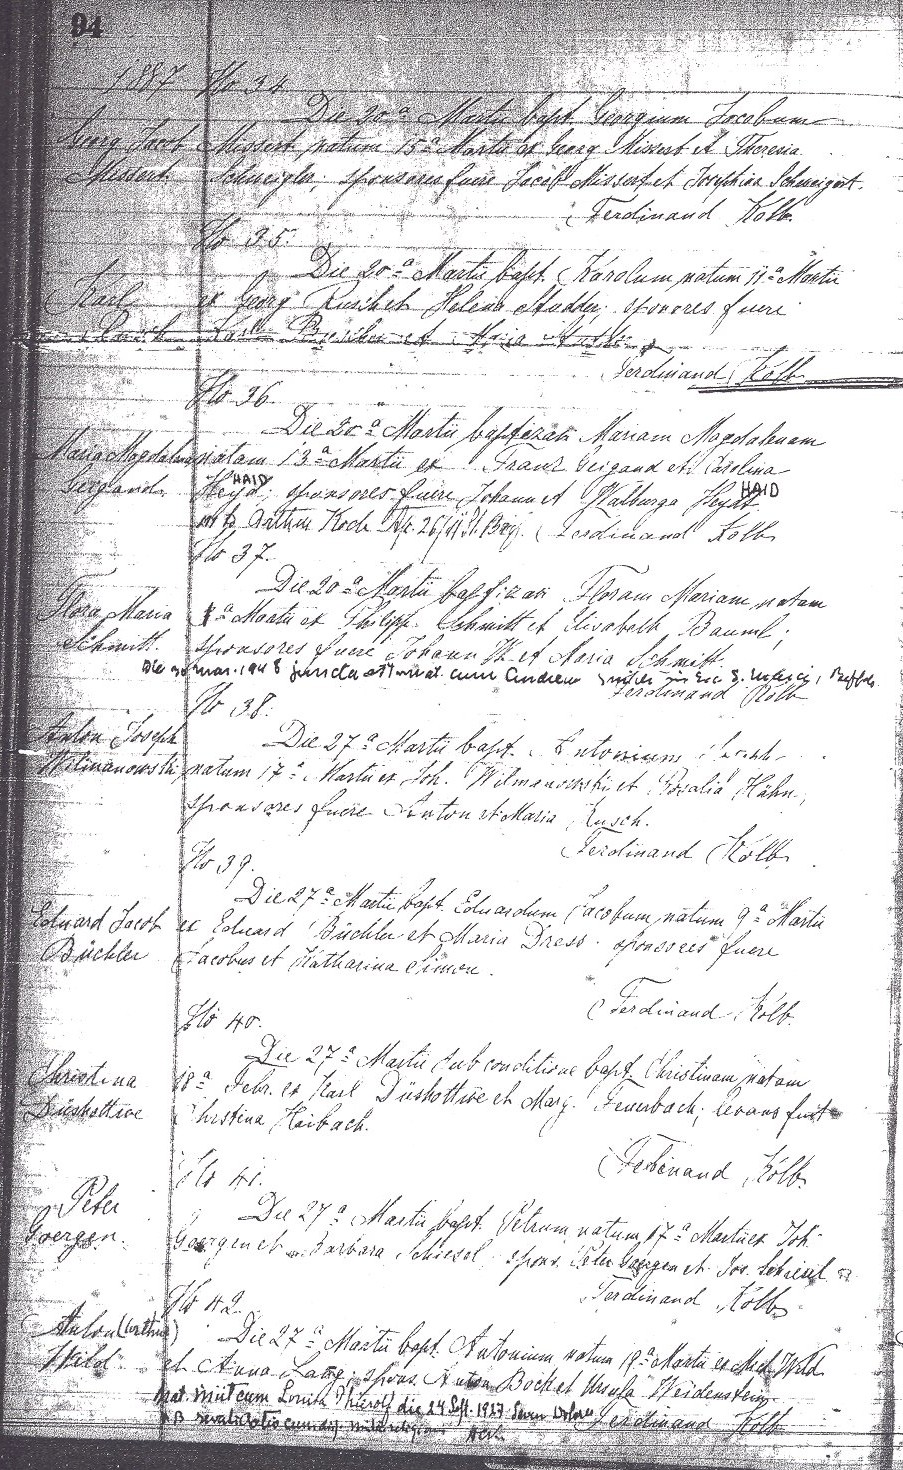 94
1887 No 34
Die 20a Martii bapt. Georgium Jacobum
Georg Jacob Missert, natum 15a Martii ex Georg Missert et Theresia
Missert. Schweigler; sponsores fuere Jacob Missert et Josephina Schweigert.
Ferdinand Kolb.
No 35.
Die 20a Martii bapt. Karolum, natum 11a Martii
Karl ex Georg Rusch et Helena; sponsores fuere
et Maria
Ferdinand Kolb
No 36.
Die 20a Martii baptizavi Mariam Magdalenam
Maria Magdalena natam 13a Martii ex Franz Geigand et Carolina
HAID HAID
Geigand. Heyd; sponsores fuere Johann et Walburga Heydt.
Arthur Koch Ap. 26/11 St. Ferdinand Kolb
No 37.
Die 20a Martii baptizavi Floram Mariam, natam
Flora Maria 1a Martii ex Philipp Schmitt et Elisabeth Bauml;
Schmitt. sponsores fuere Johann et Maria Schmitt.
Die 30 Mar. 1948 juncta est mat. cum Andrew in Ecc S. Buffalo.
Ferdinand Kolb
No 38.
Anton Joseph Die 27a Martii bapt. Antonium
Wilmanowski, natum 17a Martii ex Joh. Wilmanowski et Rosalia Hahn,
sponsores fuere Anton et Maria Rusch.
Ferdinand Kolb.
No 39.
Die 27a Martii bapt. Eduardum Jacobum, natum 9a Martii
Eduard Jacob ex Eduard Büchler et Maria Dress. sponsores fuere
Büchler Jacobus et Katharina Simon.
Ferdinand Kolb.
No 40.
Die 27a Martii sub conditione bapt. Christinam, natam
Christina 18a Febr. ex Karl Düshottwe et Marg. Feuerbach; levans fuit
Düshottwe Christina Haibach.
Ferdinand Kolb
No 41.
Peter Die 27a Martii bapt. Petrum, natum 17a Martii ex Joh.
Goergen. Goergen et Barbara Schiesel spons. Peter Goergen et Jos. Schiesel
Ferdinand Kolb
No 42.
Anton (Arthur) Die 27a Martii bapt. Antonium natum 19a Martii ex Mich. Wild
Wild et Anna Lang; spons. Anton Bock et Ursula Weidenstein
Mat. iniit cum Louisa die 24 Sept. 1927 Seven Dolors Ferdinand Kolb
NB cum disp. mixtae religionis